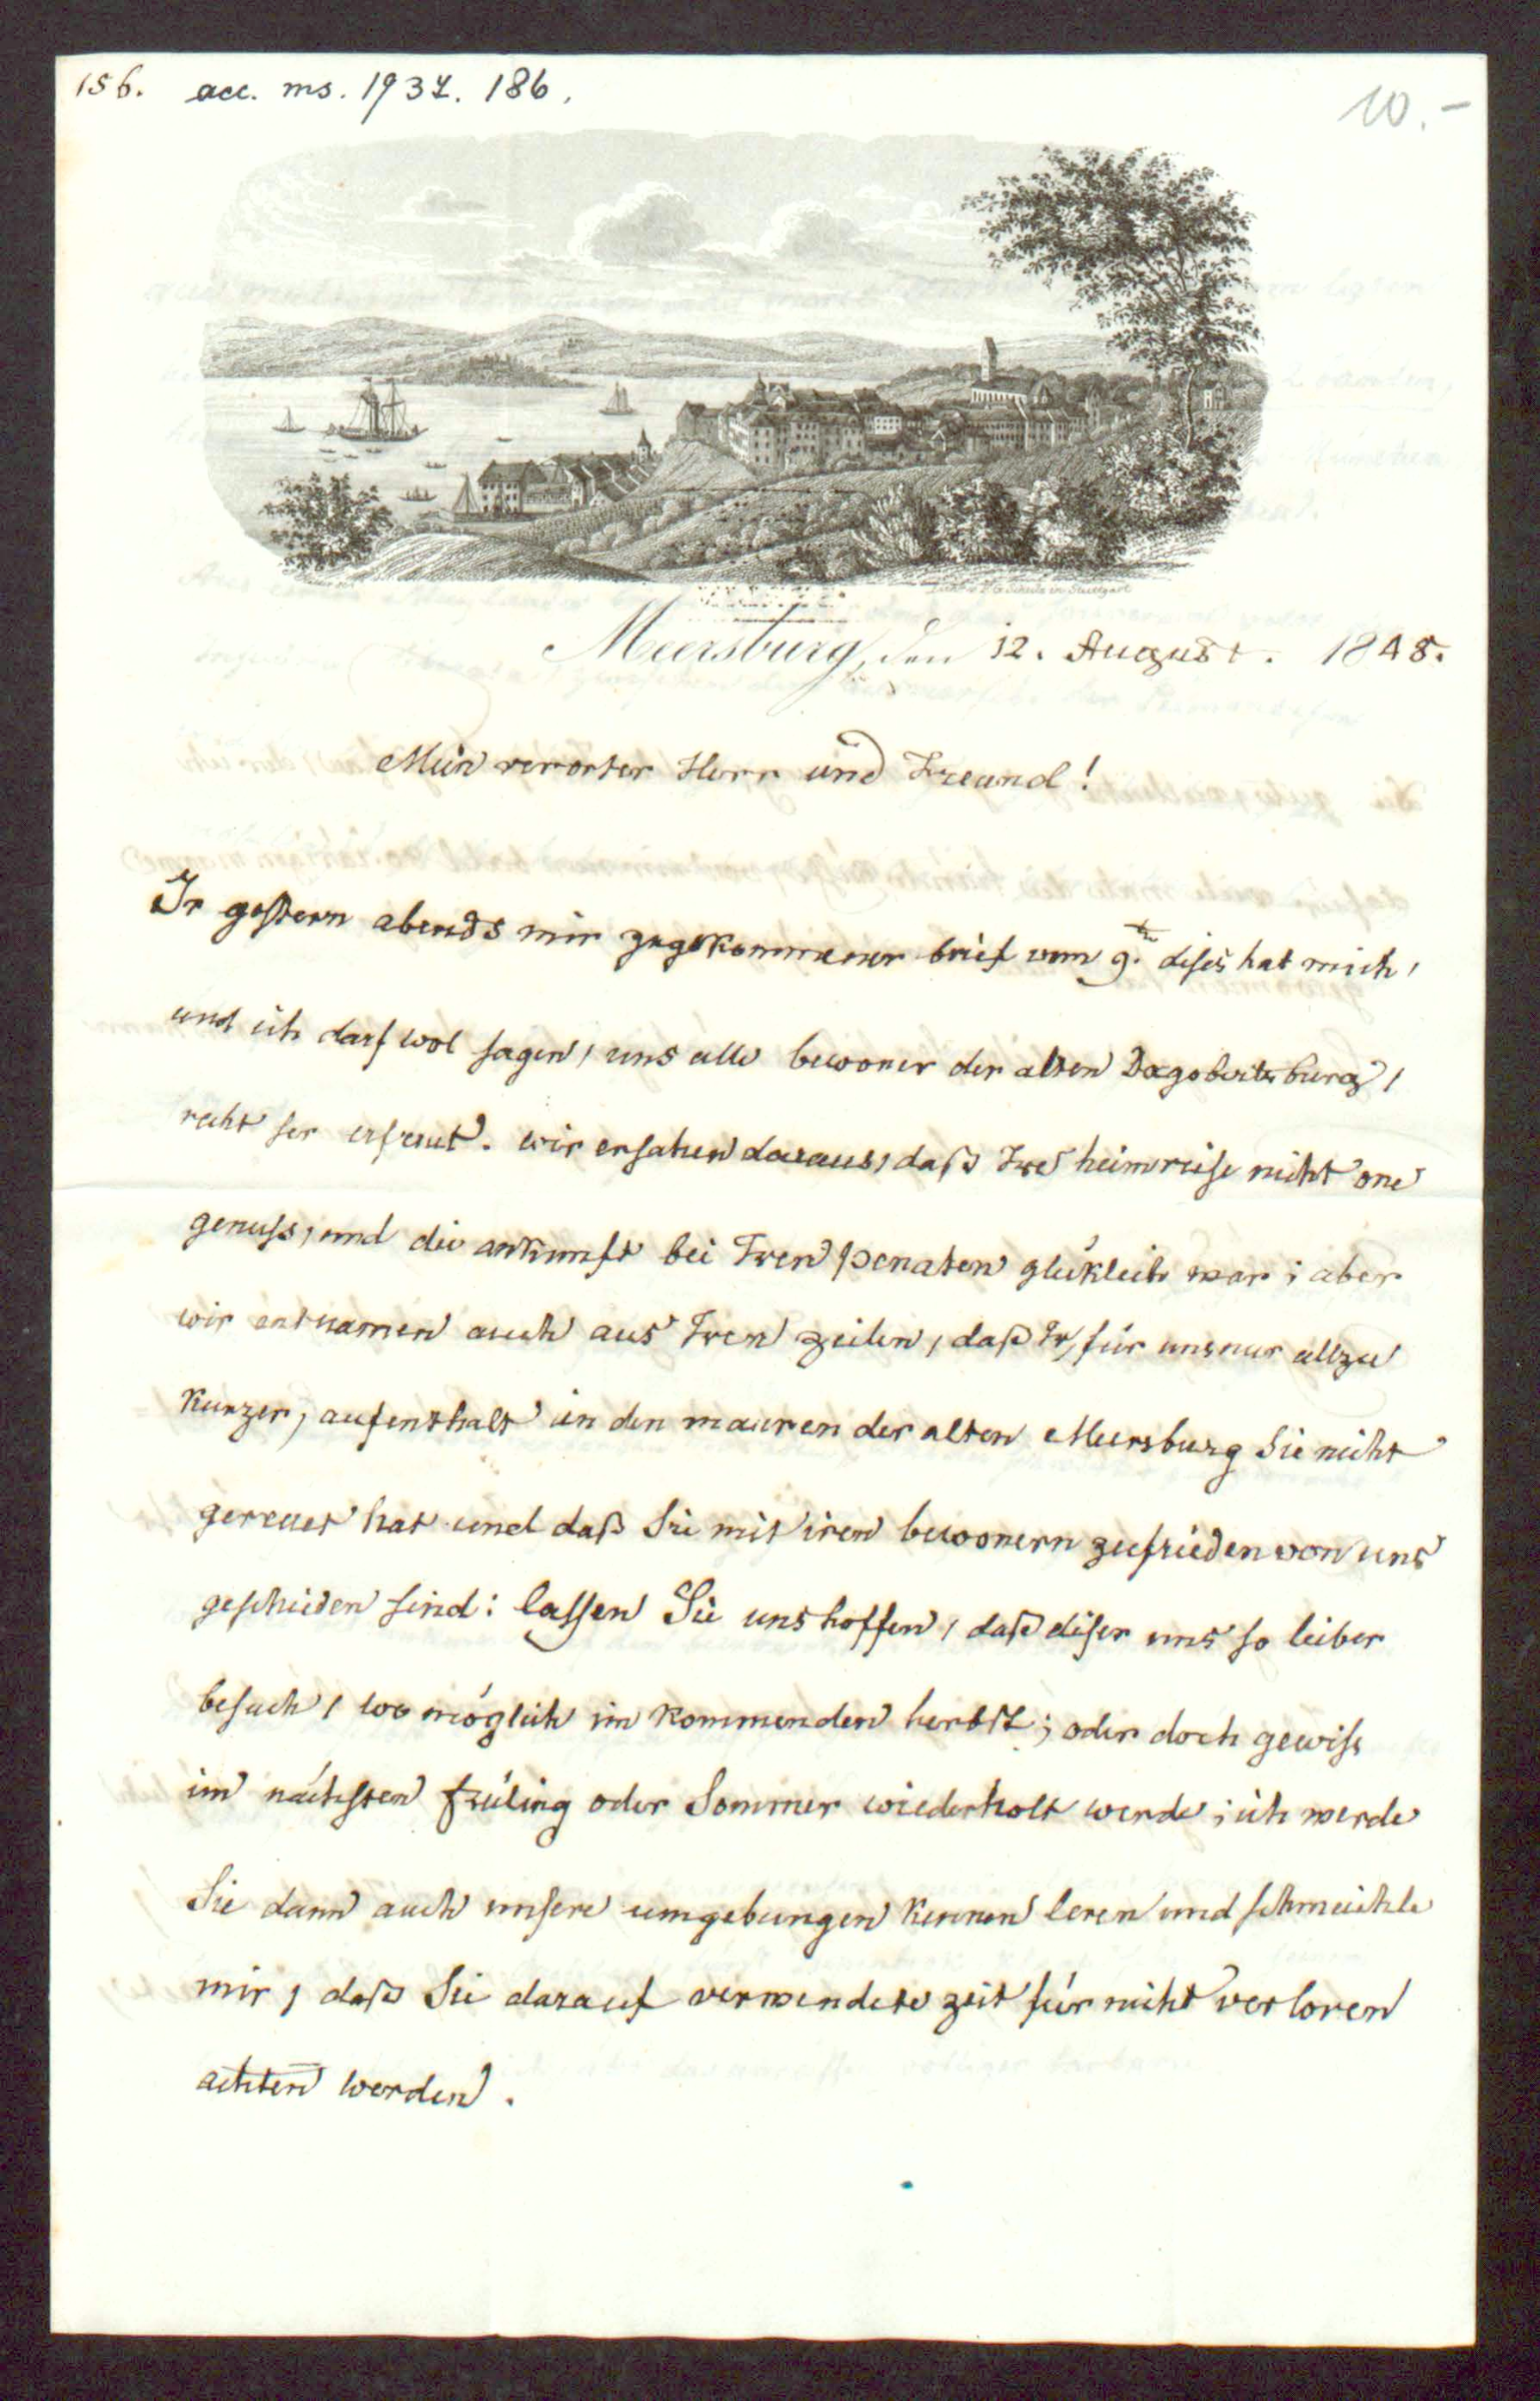 156. acc. ms. 1937. 186.
10.-
Meersburg, den 12. August. 1848.
Mein vererter Herr und Freund!
Ir gestern abends mir zugekommener brief vom 9.ten dises hat mich,
und ich darf wol sagen, uns alle bewoner der alten Dagobertsburg,
recht ser erfreut. wir ersahen daraus, daß Ire heimreise nicht one
genuss, und die ankunft bei Iren penaten glüklich war; aber
wir entnamen auch aus Iren zeilen, daß Ir, für uns nur allzu
kurzer, aufenthalt in den mauren der alten Meersburg Sie nicht
gereuet hat und daß Sie mit iren bewonern zufrieden von uns
geschieden sind: lassen Sie uns hoffen, daß diser uns so lieber
besuch, wo möglich im kommenden herbst; oder doch gewiss
im nächsten früling oder Sommer wiederholt werde; ich werde
Sie dann auch unsere umgebungen kennen leren und schmeichle
mir, daß Sie darauf verwendete zeit für nicht verloren
achten werden.